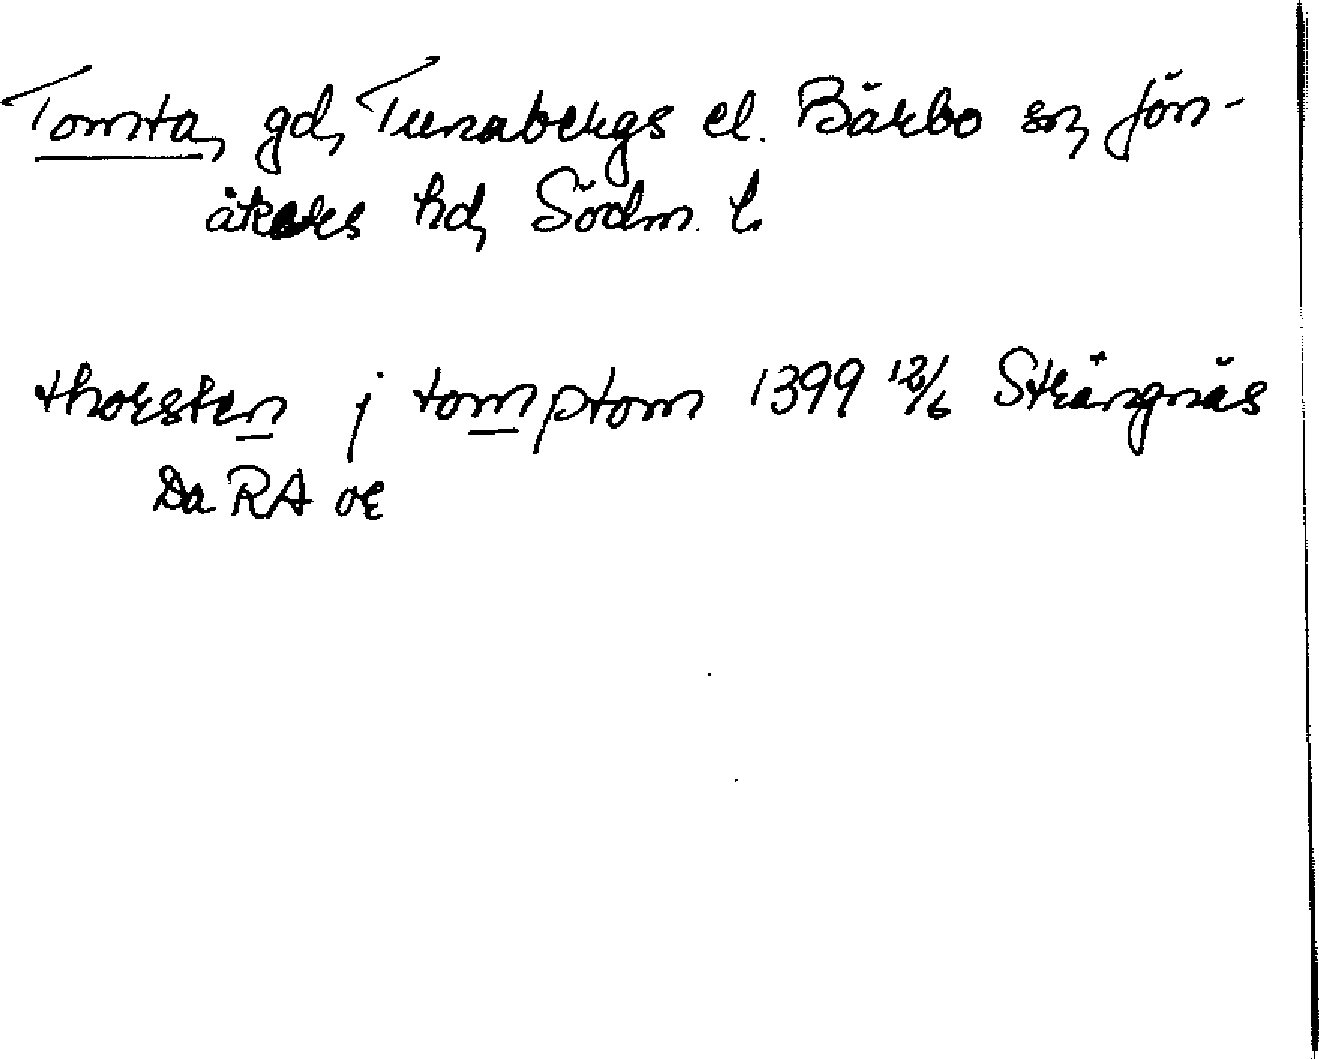 Tomta, gd, Tunabergs el. Bärbo sn, Jön-
åkers hd, Södm. l.
thorsten j tomptom 1399 12/6 Strängnäs
Da RA or